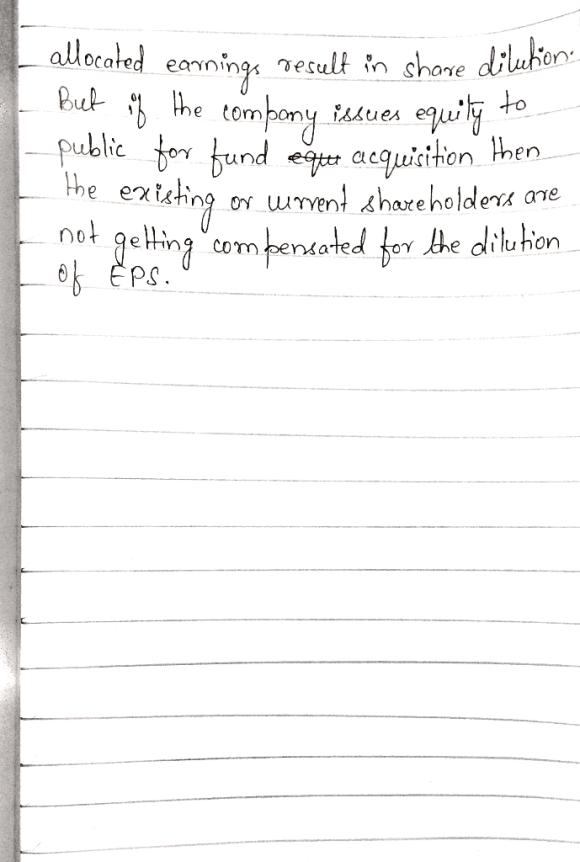 allocated earnings result in share dilution.
But if the company issues equity to
public for fund equt acquisition then
the existing or current shareholders are
not getting compensated for the dilution
of EPS.